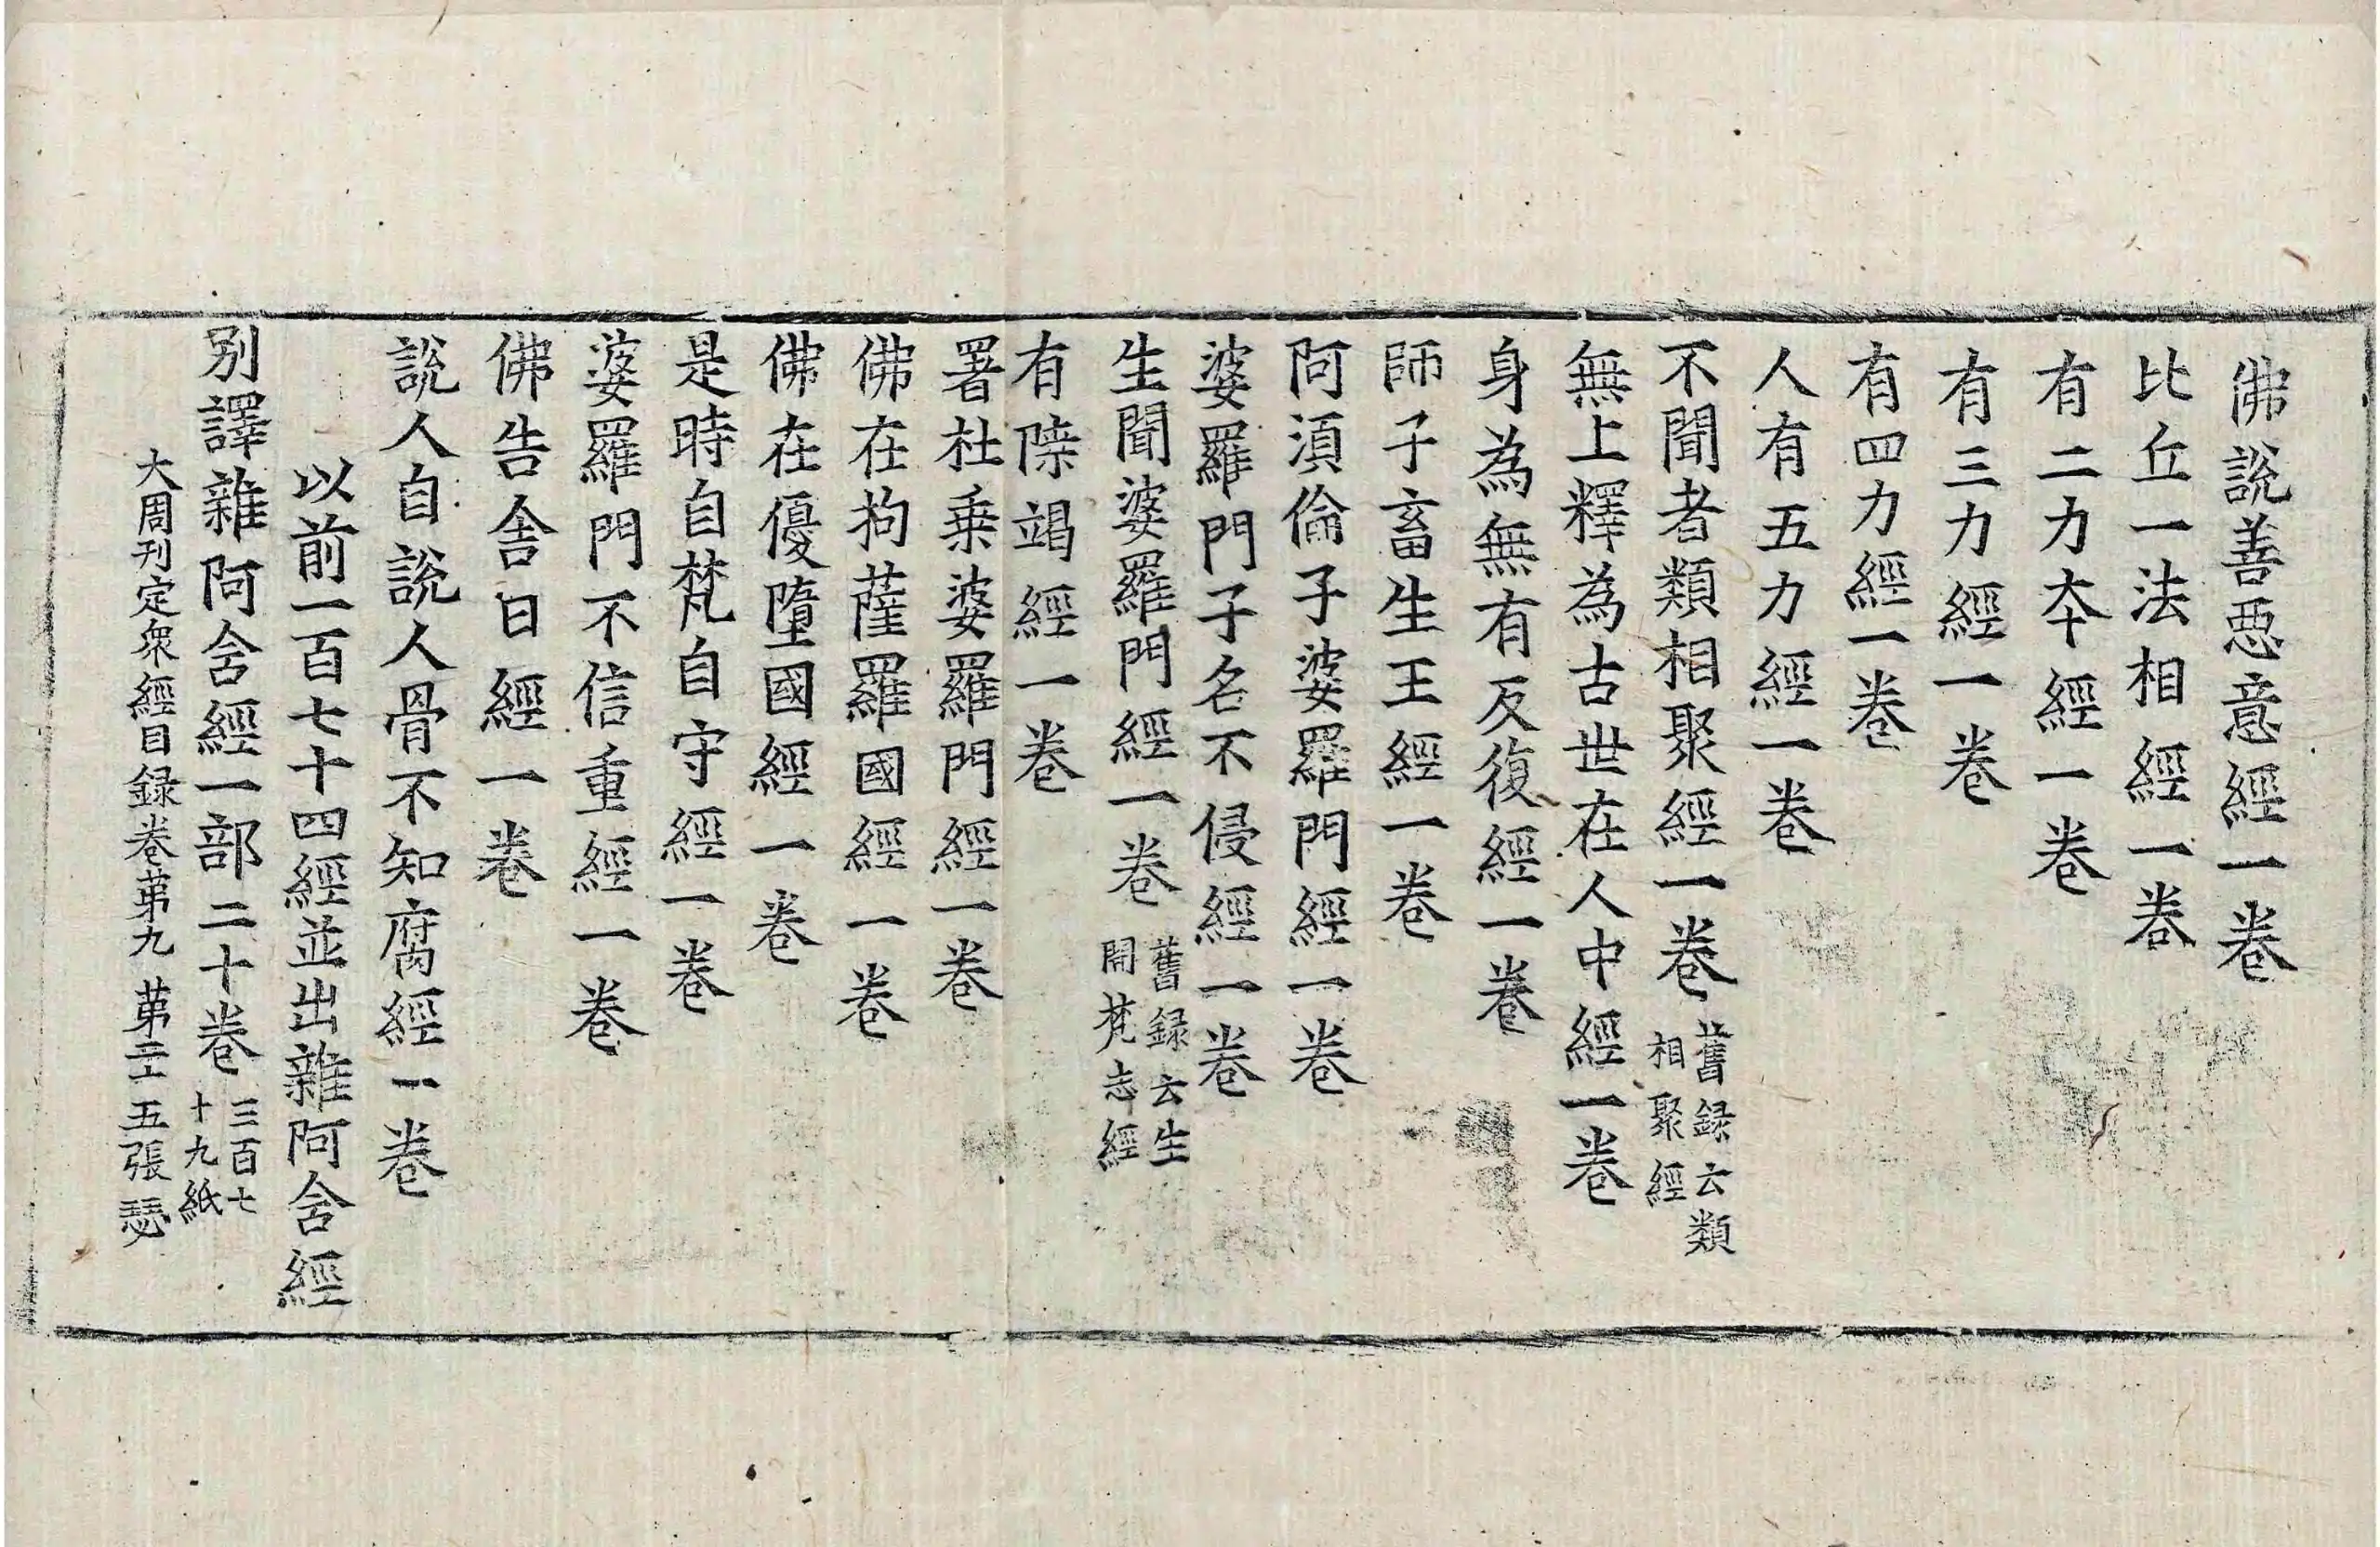 佛說善惡意經一卷
比丘一法相經一卷
有二力本經一卷
有三力經一卷
有四力經一卷
人有五力經一卷
不聞者類相聚經一卷 舊録云類
相聚經
無上釋為古世在人中經一卷
身為無有反復經一卷
師子畜生王經一卷
阿湏倫子婆羅門經一卷
婆羅門子名不侵經一卷
生聞婆羅門經一卷 舊録云生
聞梵志經
有𨻶竭經一卷
署杜乗婆羅門經一卷
佛在拘薩羅國經一卷
佛在優墮國經一卷
是時自梵自守經一卷
婆羅門不信重經一卷
佛告舎日經一卷
說人自說人骨不知腐經一卷
以前一百七十四經並出雜阿含經
别譯雜阿含經一部二十卷 三百七
十九紙
大周刊定衆經目録卷苐九 苐二十五張 瑟